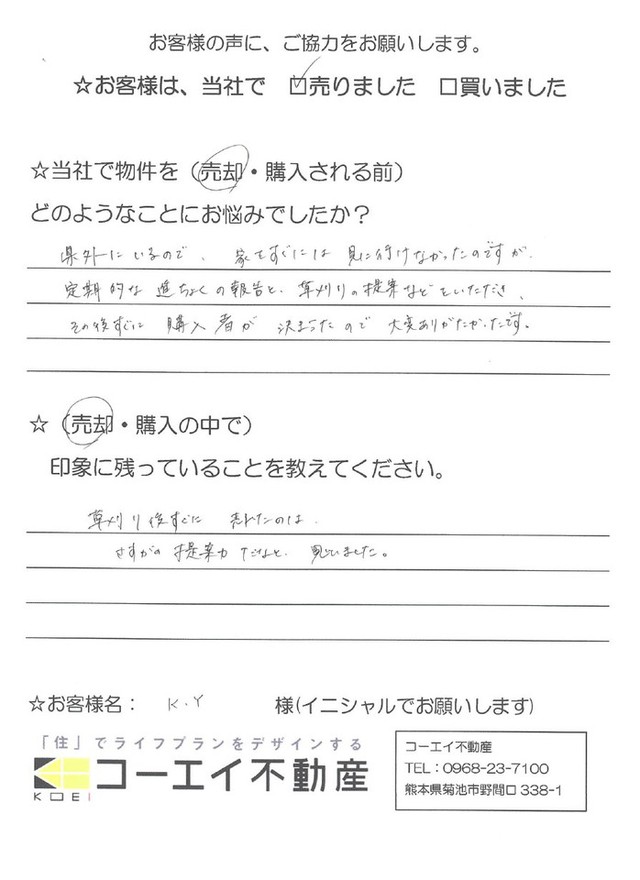 お客様の声に、ご協力をお願いします。
☆お客様は、当社で ☑売りました □買いました
☆当社で物件を（売却・購入される前）
どのようなことにお悩みでしたか？
県外にいるので、家をすぐには見に行けなかったのですが、
定期的な進ちょくの報告と、草刈りの提案などをいただき、
その後すぐに購入者が決まったので大変ありがたかったです。
☆（売却・購入の中で）
印象に残っていることを教えてください。
草刈り後すぐに売れたのは、
さすがの提案力だなと、思いました。
☆お客様名： K.Y 様(イニシャルでお願いします)
「住」でライフプランをデザインする
KOEI コーエイ不動産
コーエイ不動産
TEL：0968-23-7100
熊本県菊池市野間口 338-1